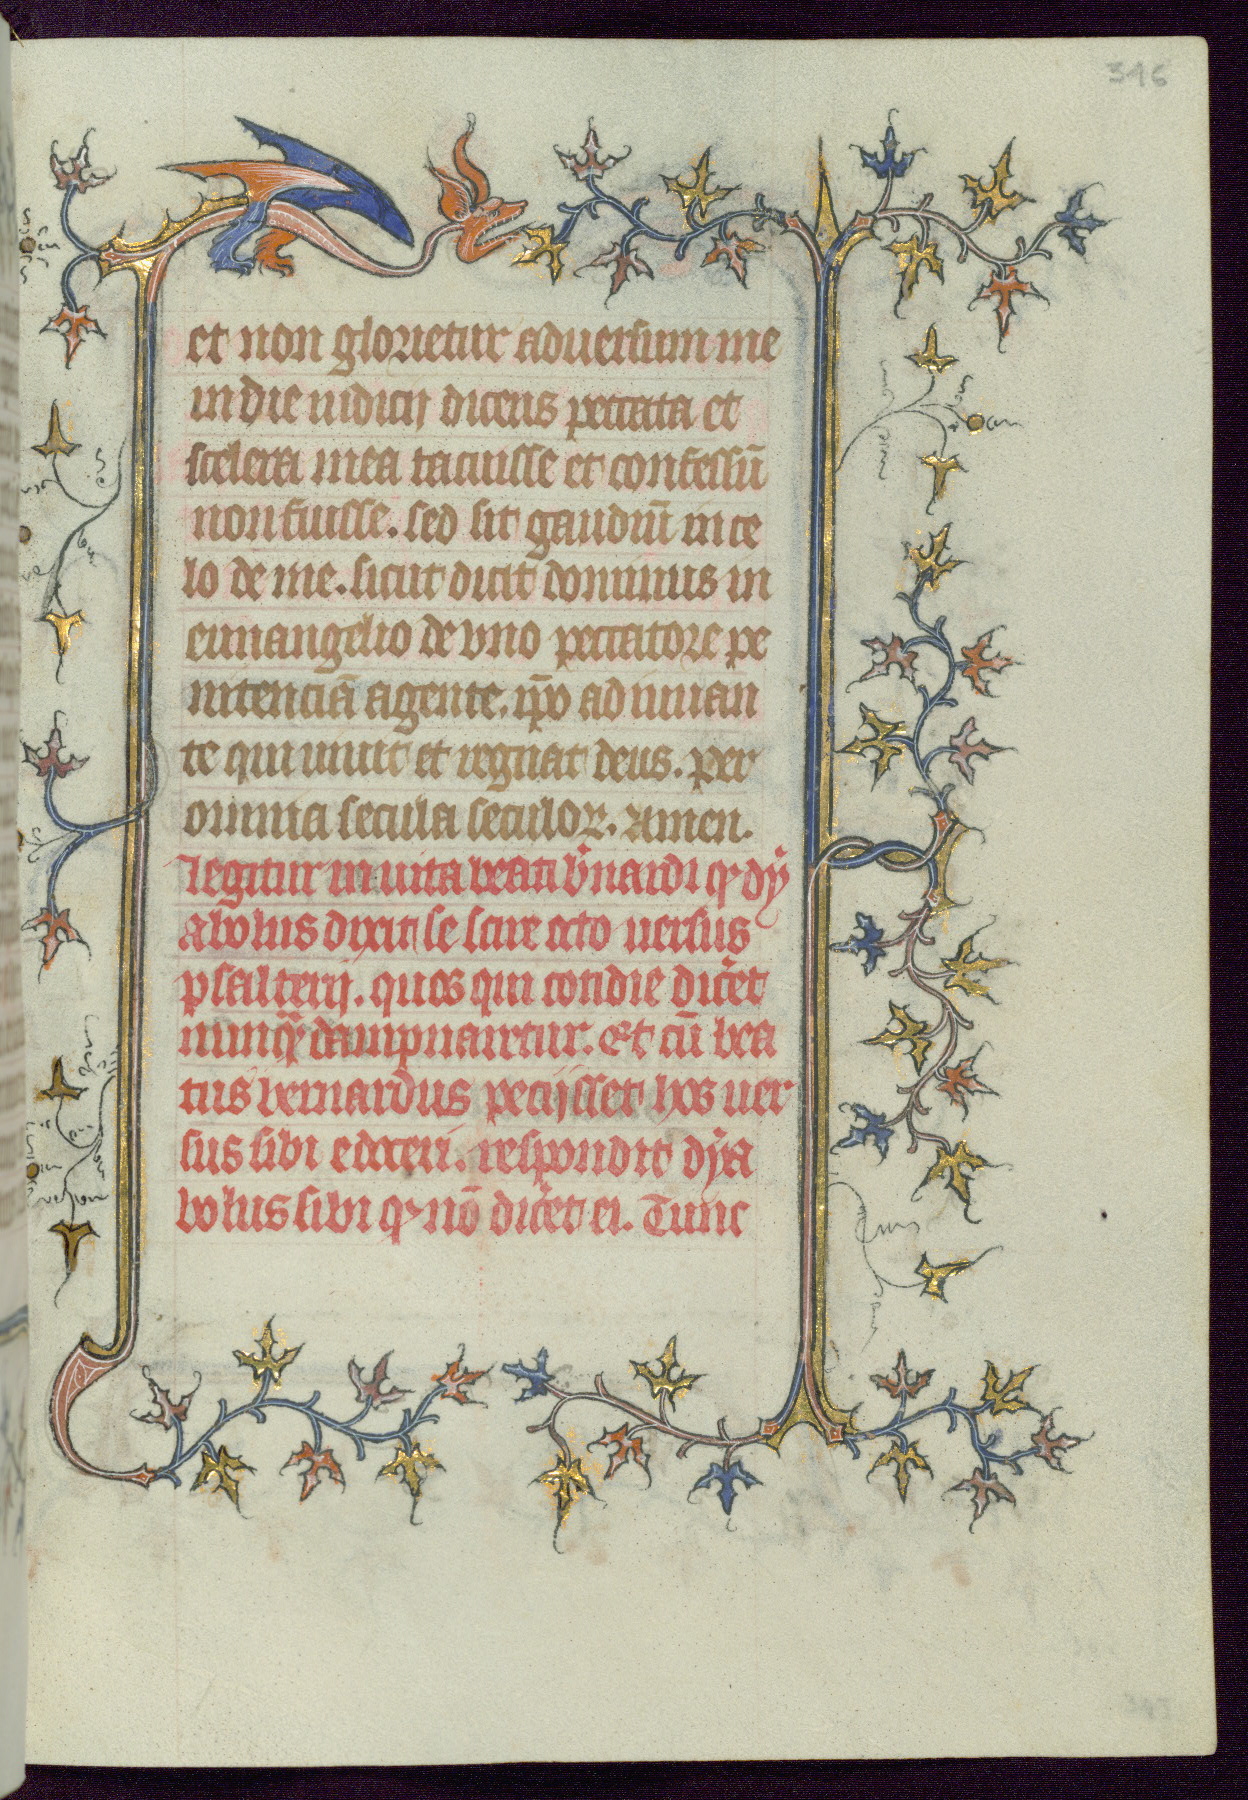 316
et non glorietur aduersum me
in die iudicij dicens peccata et
scelera mea tacuisse et confessũ
non fuisse. sed sit gaudiũ in ce
lo de me. sicut dicit dominus in
euuangelio de vno peccatore pe
nitenciã agente. ip̃o adiuuan
te qui uiuit et regnat deus. per
omnia secula seculoꝝ. Amen.
Legitur in uita beati b̃nardi ꝙ dy
abolus dixit se scire octo uersus
psalterij. quos qui cotidie dic̃et
nunq̃ dampnaretur. Et cũ bea
tus bernardus pecijsset hos uer
sus sibi edoceri. respondit dya
bolus sibi ꝙ nõ dic̃et ei. Tunc